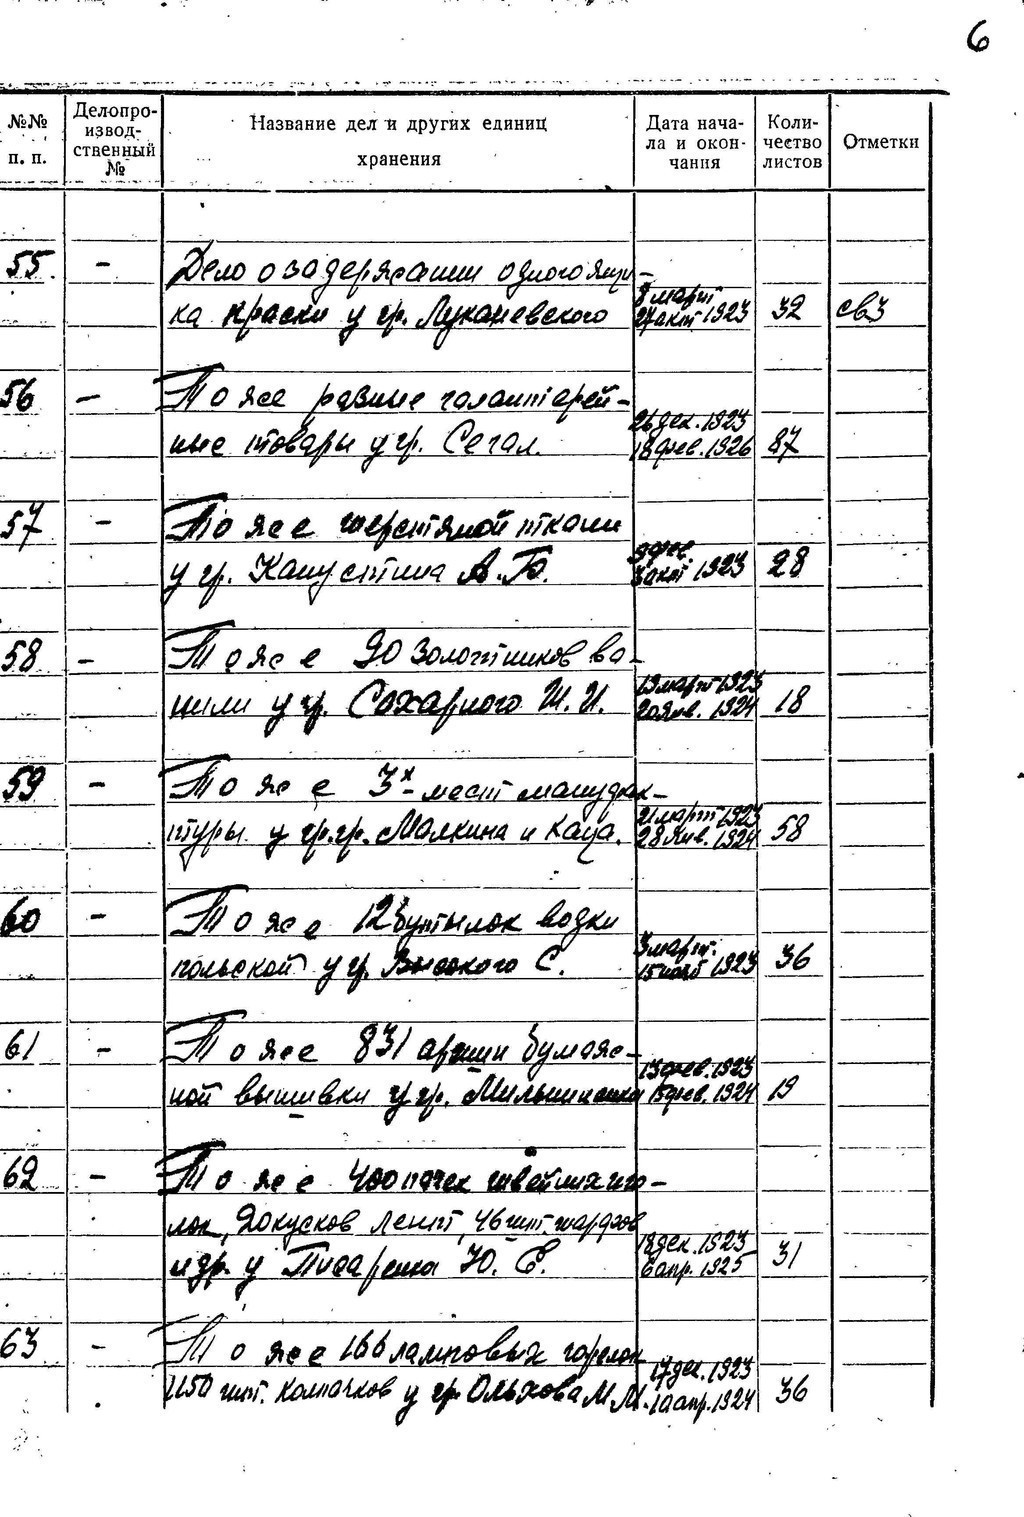 6
№№ п. п.
Делопро-
извод-
ственный
№
Название дел и других единиц
хранения
Дата нача-
ла и окон-
чания
Коли-
чество
листов
Отметки
55. - Дело о задержании одного ящи-
ка краски у гр. Лукашевского 8 март 27 окт 1923 32 свз
56 - То же разные галантерей-
ные товары у гр. Сегал. 26 дек. 1923 18 фев. 1926 87
57 - То же шерстяной ткани
у гр. Капустина А. Б. 9 фев. 3 окт 1923 28
58 - То же 90 золотников ва-
нили у гр. Сахарного И. И. 19 март 1923 20 янв. 1924 18
59 - То же 3х мест мануфак-
туры у гр.гр. Малкина и Каца. 21 март 1923 28 янв. 1924 58
60 - То же 12 бутылок водки
польской у гр. Высокого С. 3 март. 15 нояб 1923 36
61 - То же 831 аршин бумаж-
ной вышивки у гр. 13 фев. 1923 15 фев. 1924 19
62 - То же 400 пачек швейных иго-
лок, 20 кусков лент, 46 шт. шарфов
и др. у Писаренка Ю. Е. 18 дек. 1923 6 апр. 1925 31
63 - То же 166 ламповых горелок
1150 шт. колпачков у гр. Ольхова М.М. 17 дек. 1923 10 апр. 1924 36